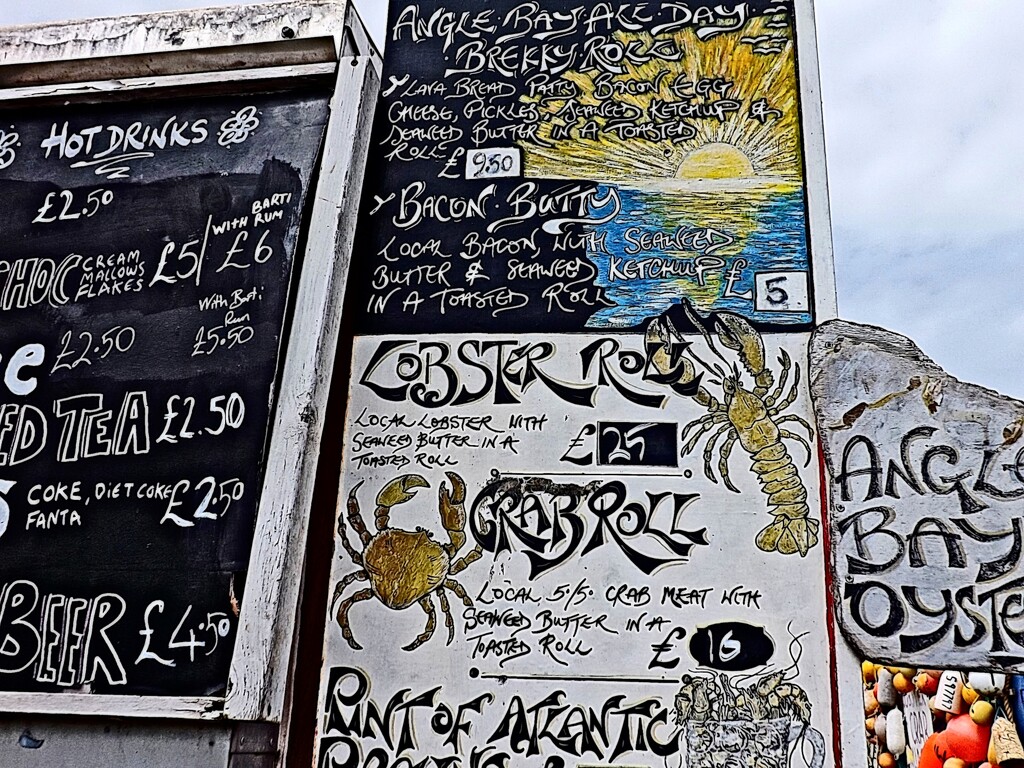 HOT DRINKS
£2.50
CHOC CREAM MALLOWS FLAKES £5 / WITH BARTI RUM £6
£2.50 With Barti Rum £5.50
TEA £2.50
COKE, DIET COKE £2.50
FANTA
BEER £4.50
ANGLE · BAY · ALL DAY
· BREKKY · ROLL ·
LAVA BREAD PATTY BACON EGG
CHEESE, PICKLES SEAWEED KETCHUP &
SEAWEED BUTTER IN A TOASTED
ROLL £ 9.50
BACON · BUTTY
LOCAL BACON WITH SEAWEED
BUTTER & SEAWEED KETCHUP £ 5
IN A TOASTED ROLL
LOBSTER ROLL
LOCAL LOBSTER WITH
SEAWEED BUTTER IN A
TOASTED ROLL £ 25
CRAB ROLL
LOCAL 5%5 CRAB MEAT WITH
SEAWEED BUTTER IN A
TOASTED ROLL £ 16
PINT OF ATLANTIC
ANGLE
BAY